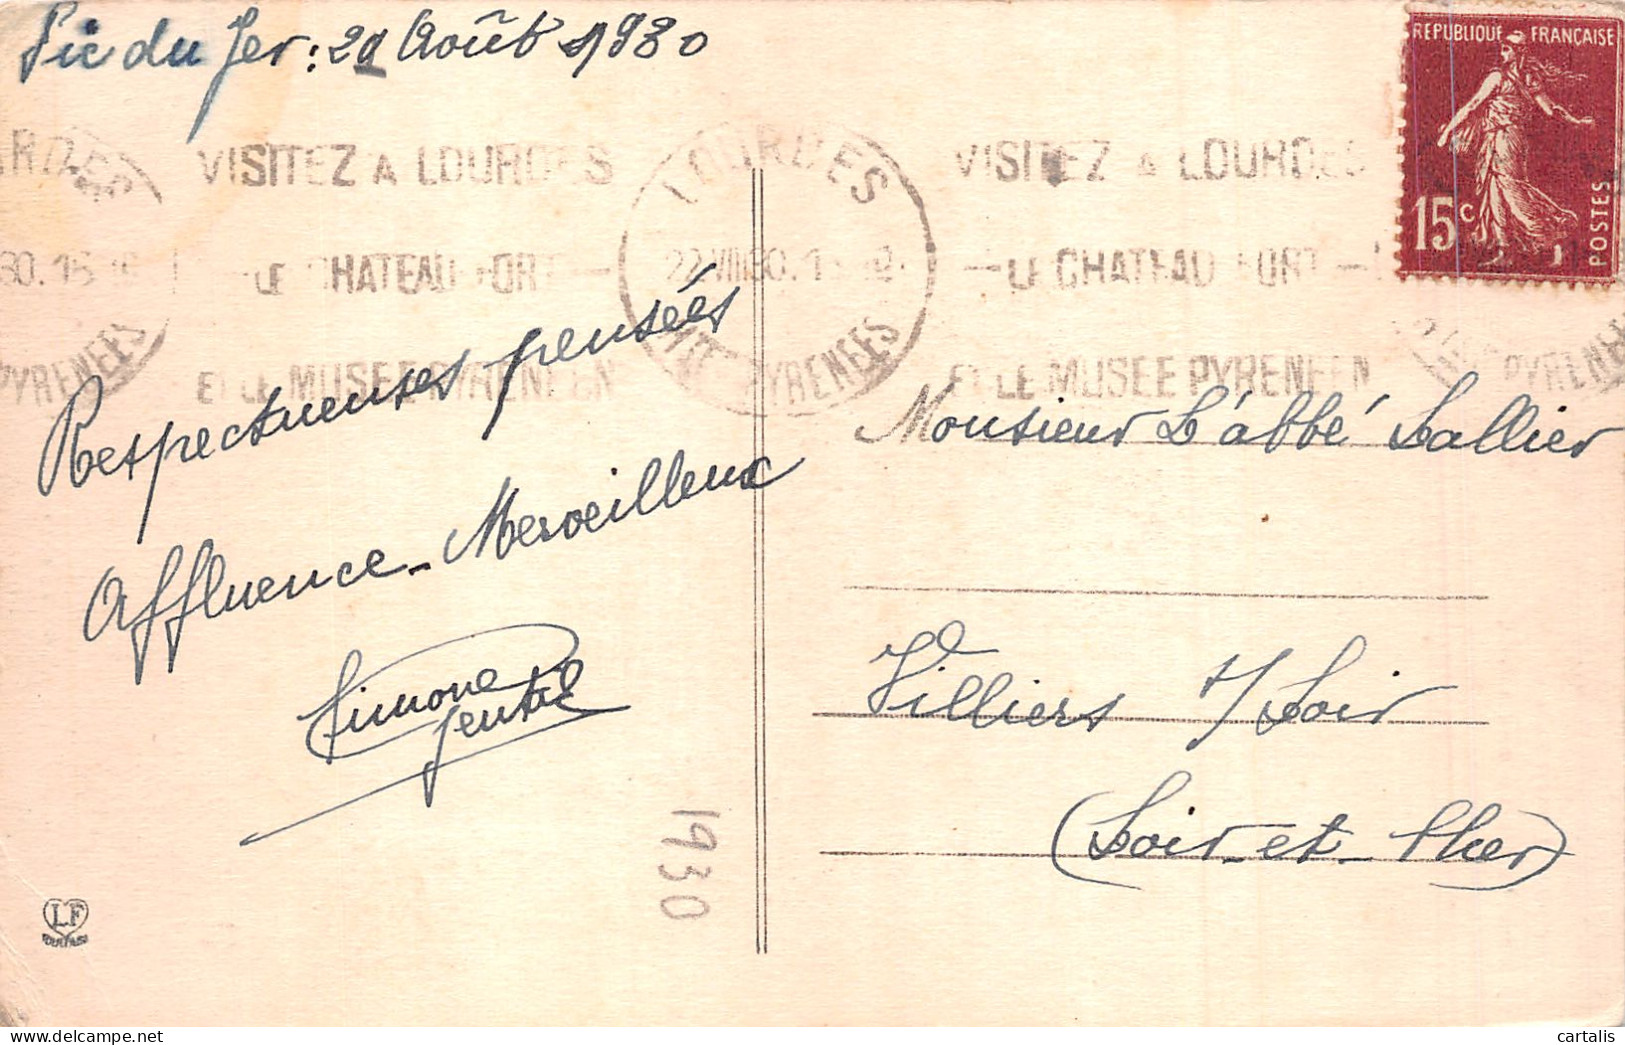 Pic du Jer : 21 Août 1930
RÉPUBLIQUE FRANÇAISE
15c
POSTES
VISITEZ A LOURDES
LE CHATEAU FORT
ET LE MUSEE PYRENEEN
LOURDES
22 VIII 30
HTES PYRENEES
VISITEZ A LOURDES
LE CHATEAU FORT
ET LE MUSEE PYRENEEN
PYRENEES
PYRENEES
Respectueuses pensées
Affluence - Merveilleux
Simone
Monsieur L'abbé Lallier
Villiers s/ Loir
(Loir-et-Cher)
1930
LF
TOULOUSE
cartalis